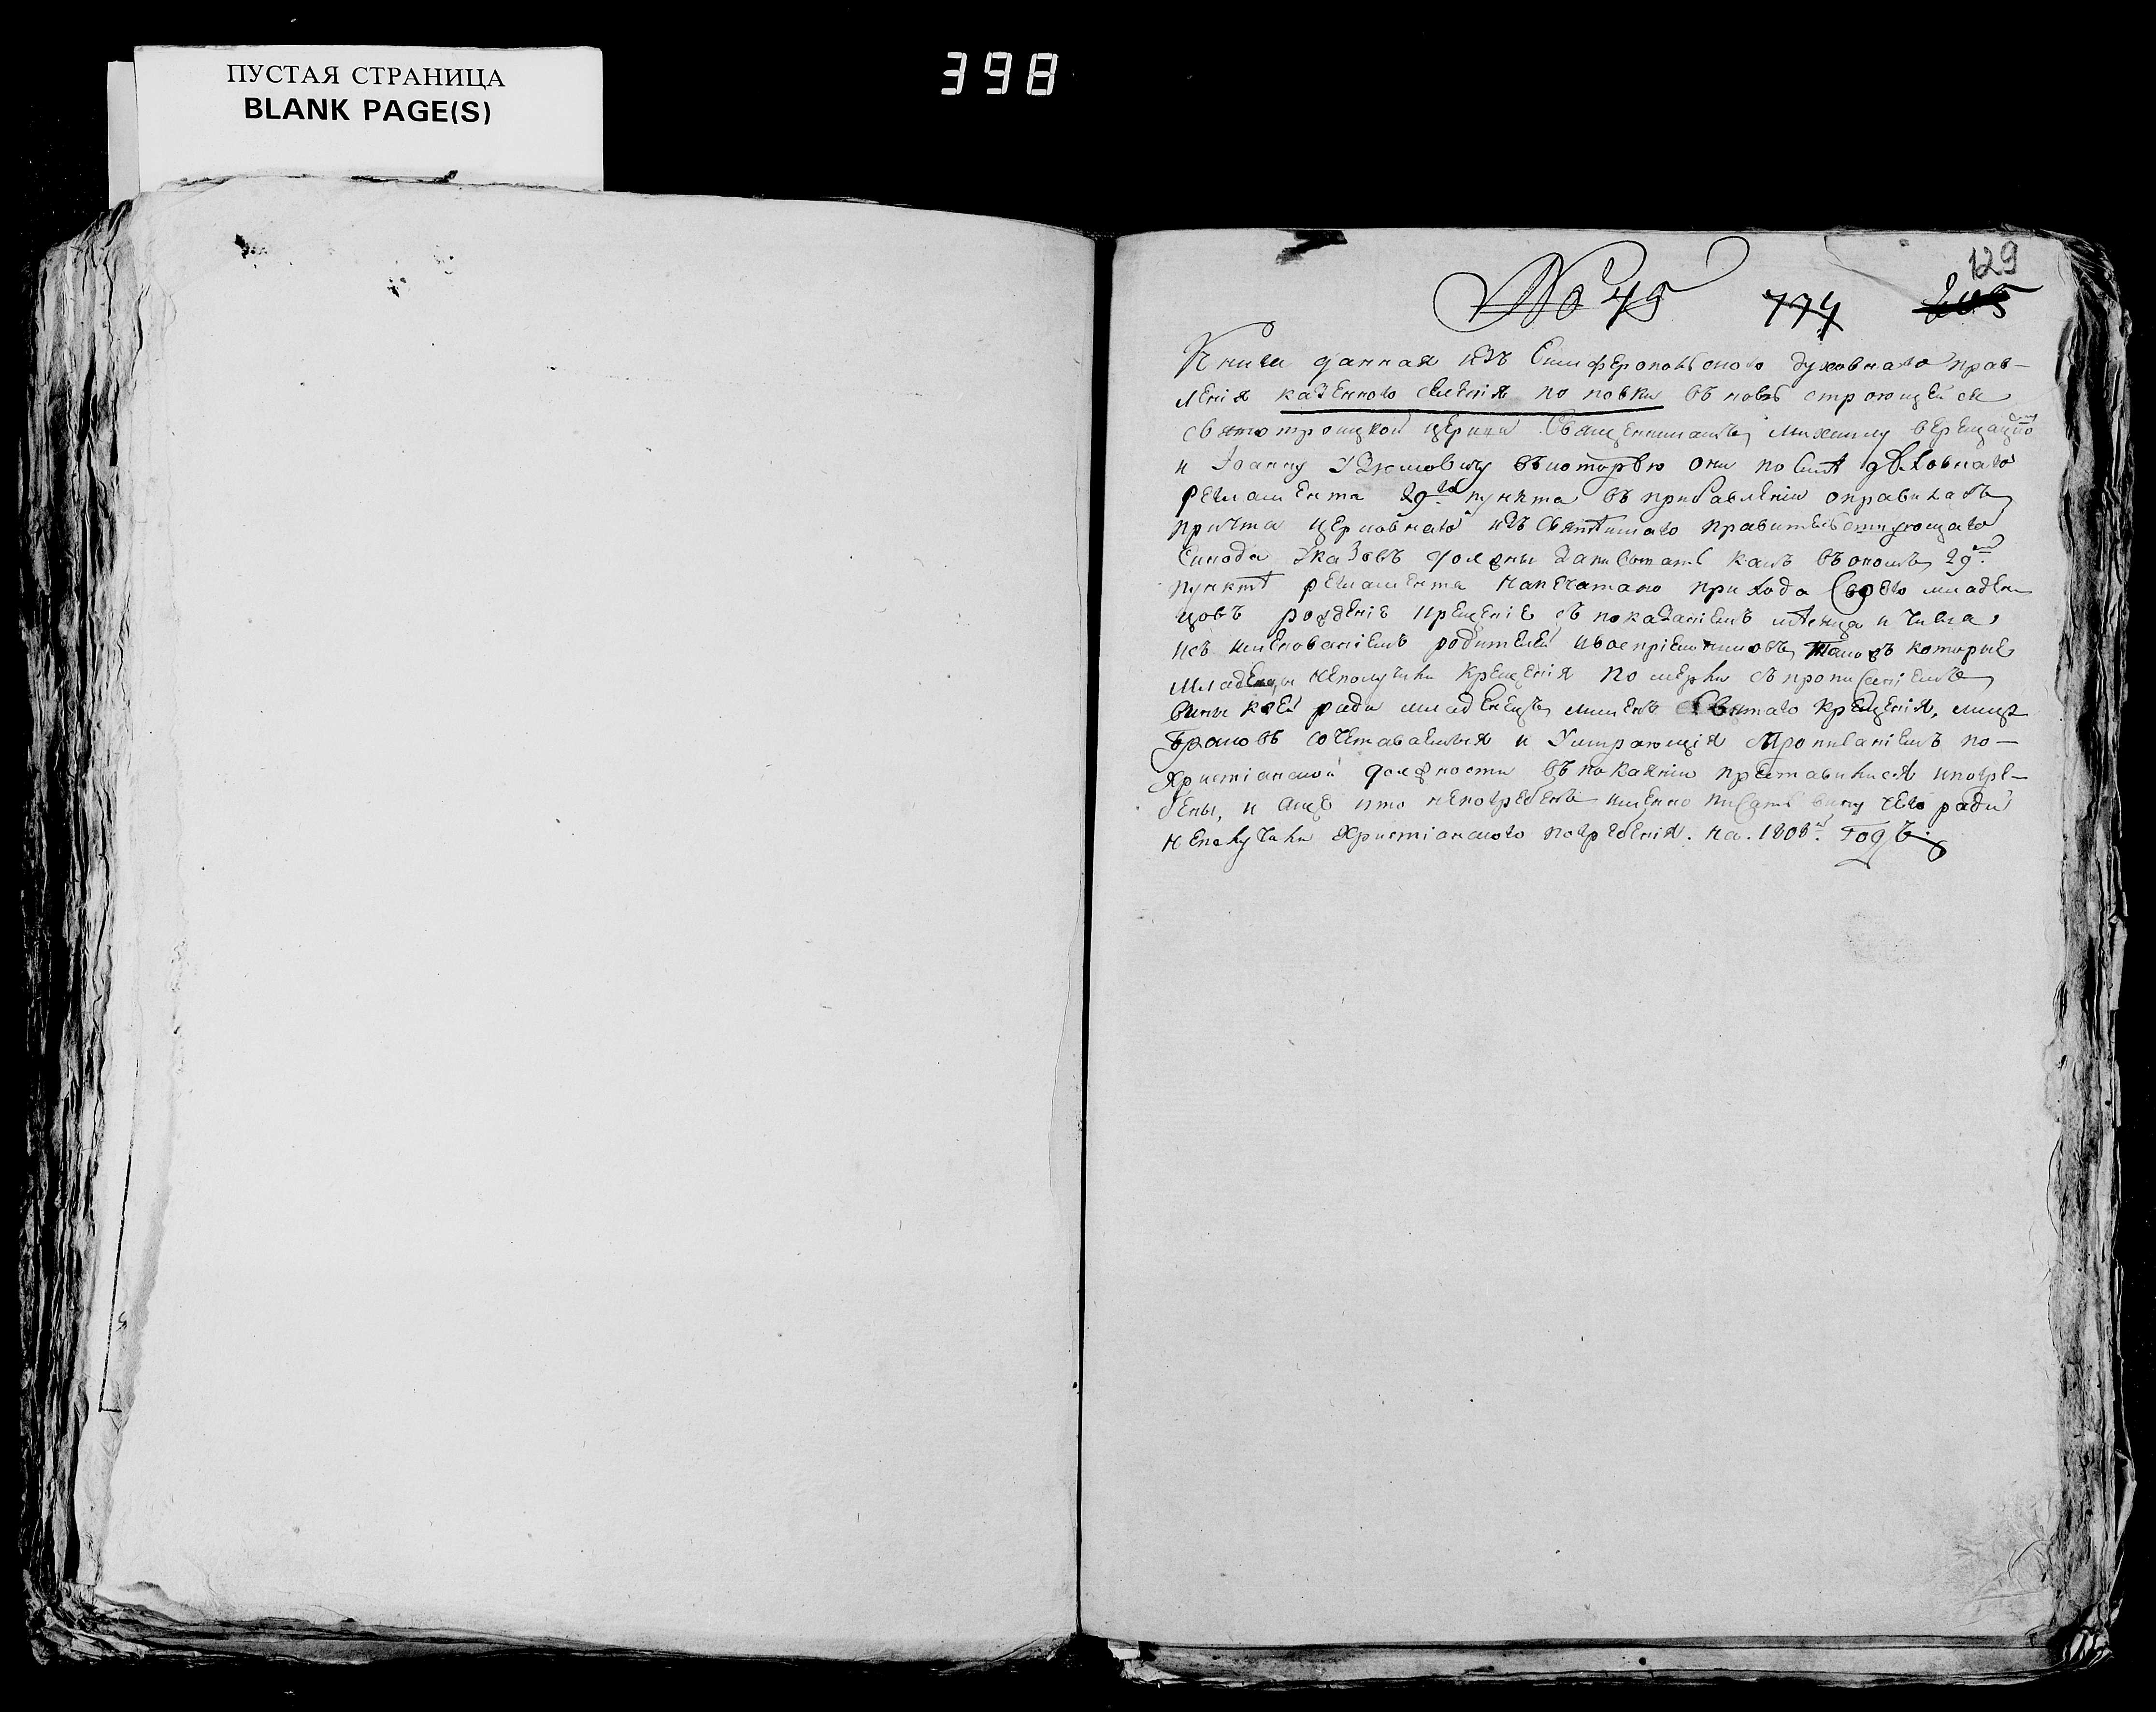 ПУСТАЯ СТРАНИЦА
BLANK PAGE(S)
398
129
№ 45 774 205
Книга данная изъ Симферопольского духовнаго прав-
ления казенного селения поповки въ новь строющейся
святотроицкой церкви Священникамъ, михаилу
и Iоанну въ которую они по силѣ духовнаго
регламента 29го пункта въ прибавлении о правилахъ
причта церковнаго изъ Святѣйшаго правительствующаго
Синода указовъ должны записывать какъ въ ономъ 29мъ
пунктѣ регламента напечатано прихода своего младен-
цовъ рождение крещение съ показаниемъ мѣсяца и числа,
исъ имянованиемъ родителей ивосприемниковъ, такожъ которые
младенцы неполучили крещения померли съ прописаниемъ
вины коей ради младенецъ лишенъ Святаго крещения, лица
бракомъ сочетаваемыя и Умирающия спрописаниемъ по-
христианской должности въ покаянии преставилися ипогре-
бены, и аще кто непогребенъ имянно писать вину чего ради
неполучили христианского погребения. на. 1808й. годъ.